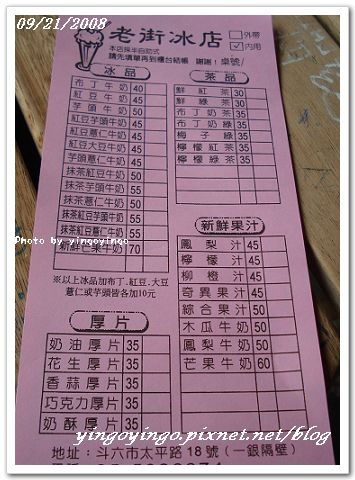 09/21/2008
老街冰店
外帶
內用
本店採半自助式
請先填單再到櫃台結帳 謝謝!桌號/
冰品
布丁牛奶 40
紅豆牛奶 45
芋頭牛奶 50
紅豆芋頭牛奶 45
紅豆薏仁牛奶 45
紅豆大豆牛奶 45
芋頭薏仁牛奶 45
抹茶紅豆牛奶 50
抹茶芋頭牛奶 55
抹茶薏仁牛奶 50
抹茶紅豆芋頭牛奶 55
抹茶紅豆薏仁牛奶 55
新鮮芒果牛奶 70
※以上冰品加布丁.紅豆.大豆
薏仁或芋頭皆各加10元
厚片
奶油厚片 35
花生厚片 35
香蒜厚片 35
巧克力厚片 35
奶酥厚片 35
茶品
鮮紅茶 30
鮮奶茶 35
布丁奶綠 35
梅子綠 35
檸檬紅茶 35
檸檬綠茶 35
新鮮果汁
鳳梨汁 45
檸檬汁 45
柳橙汁 45
奇異果汁 45
綜合果汁 50
木瓜牛奶 50
鳳梨牛奶 50
芒果牛奶 60
地址:斗六市太平路18號(一銀隔壁)
Photo by yingoyingo
yingoyingo.pixnet.net/blog